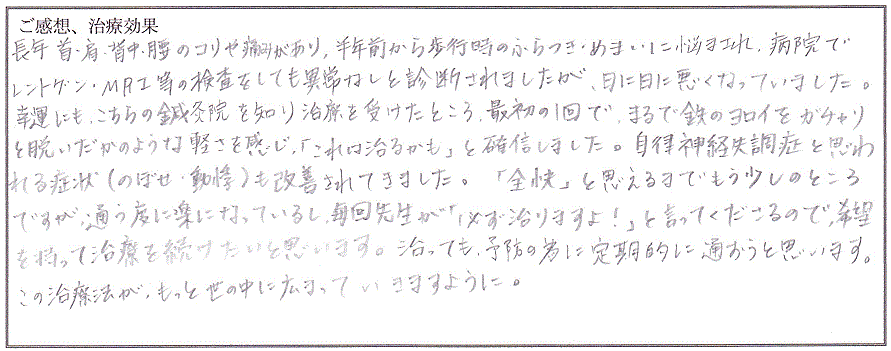 ご感想、治療効果
長年首・肩・背中・腰のコリや痛みがあり、半年前から歩行時のふらつき・めまいに悩まされ、病院で
レントゲン・MRI等の検査をしても異常なしと診断されましたが、日に日に悪くなっていました。
幸運にも、こちらの鍼灸院を知り治療を受けたところ、最初の1回で、まるで鉄のヨロイをガチャリ
と脱いだかのような軽さを感じ、「これは治るかも」と確信しました。自律神経失調症と思わ
れる症状(のぼせ・動悸)も改善されてきました。「全快」と思えるまでもう少しのところ
ですが、通う度に楽になっているし、毎回先生が「必ず治りますよ!」と言ってくださるので、希望
を持って治療を続けたいと思います。治っても、予防の為に定期的に通おうと思います。
この治療法が、もっと世の中に広まっていきますように。